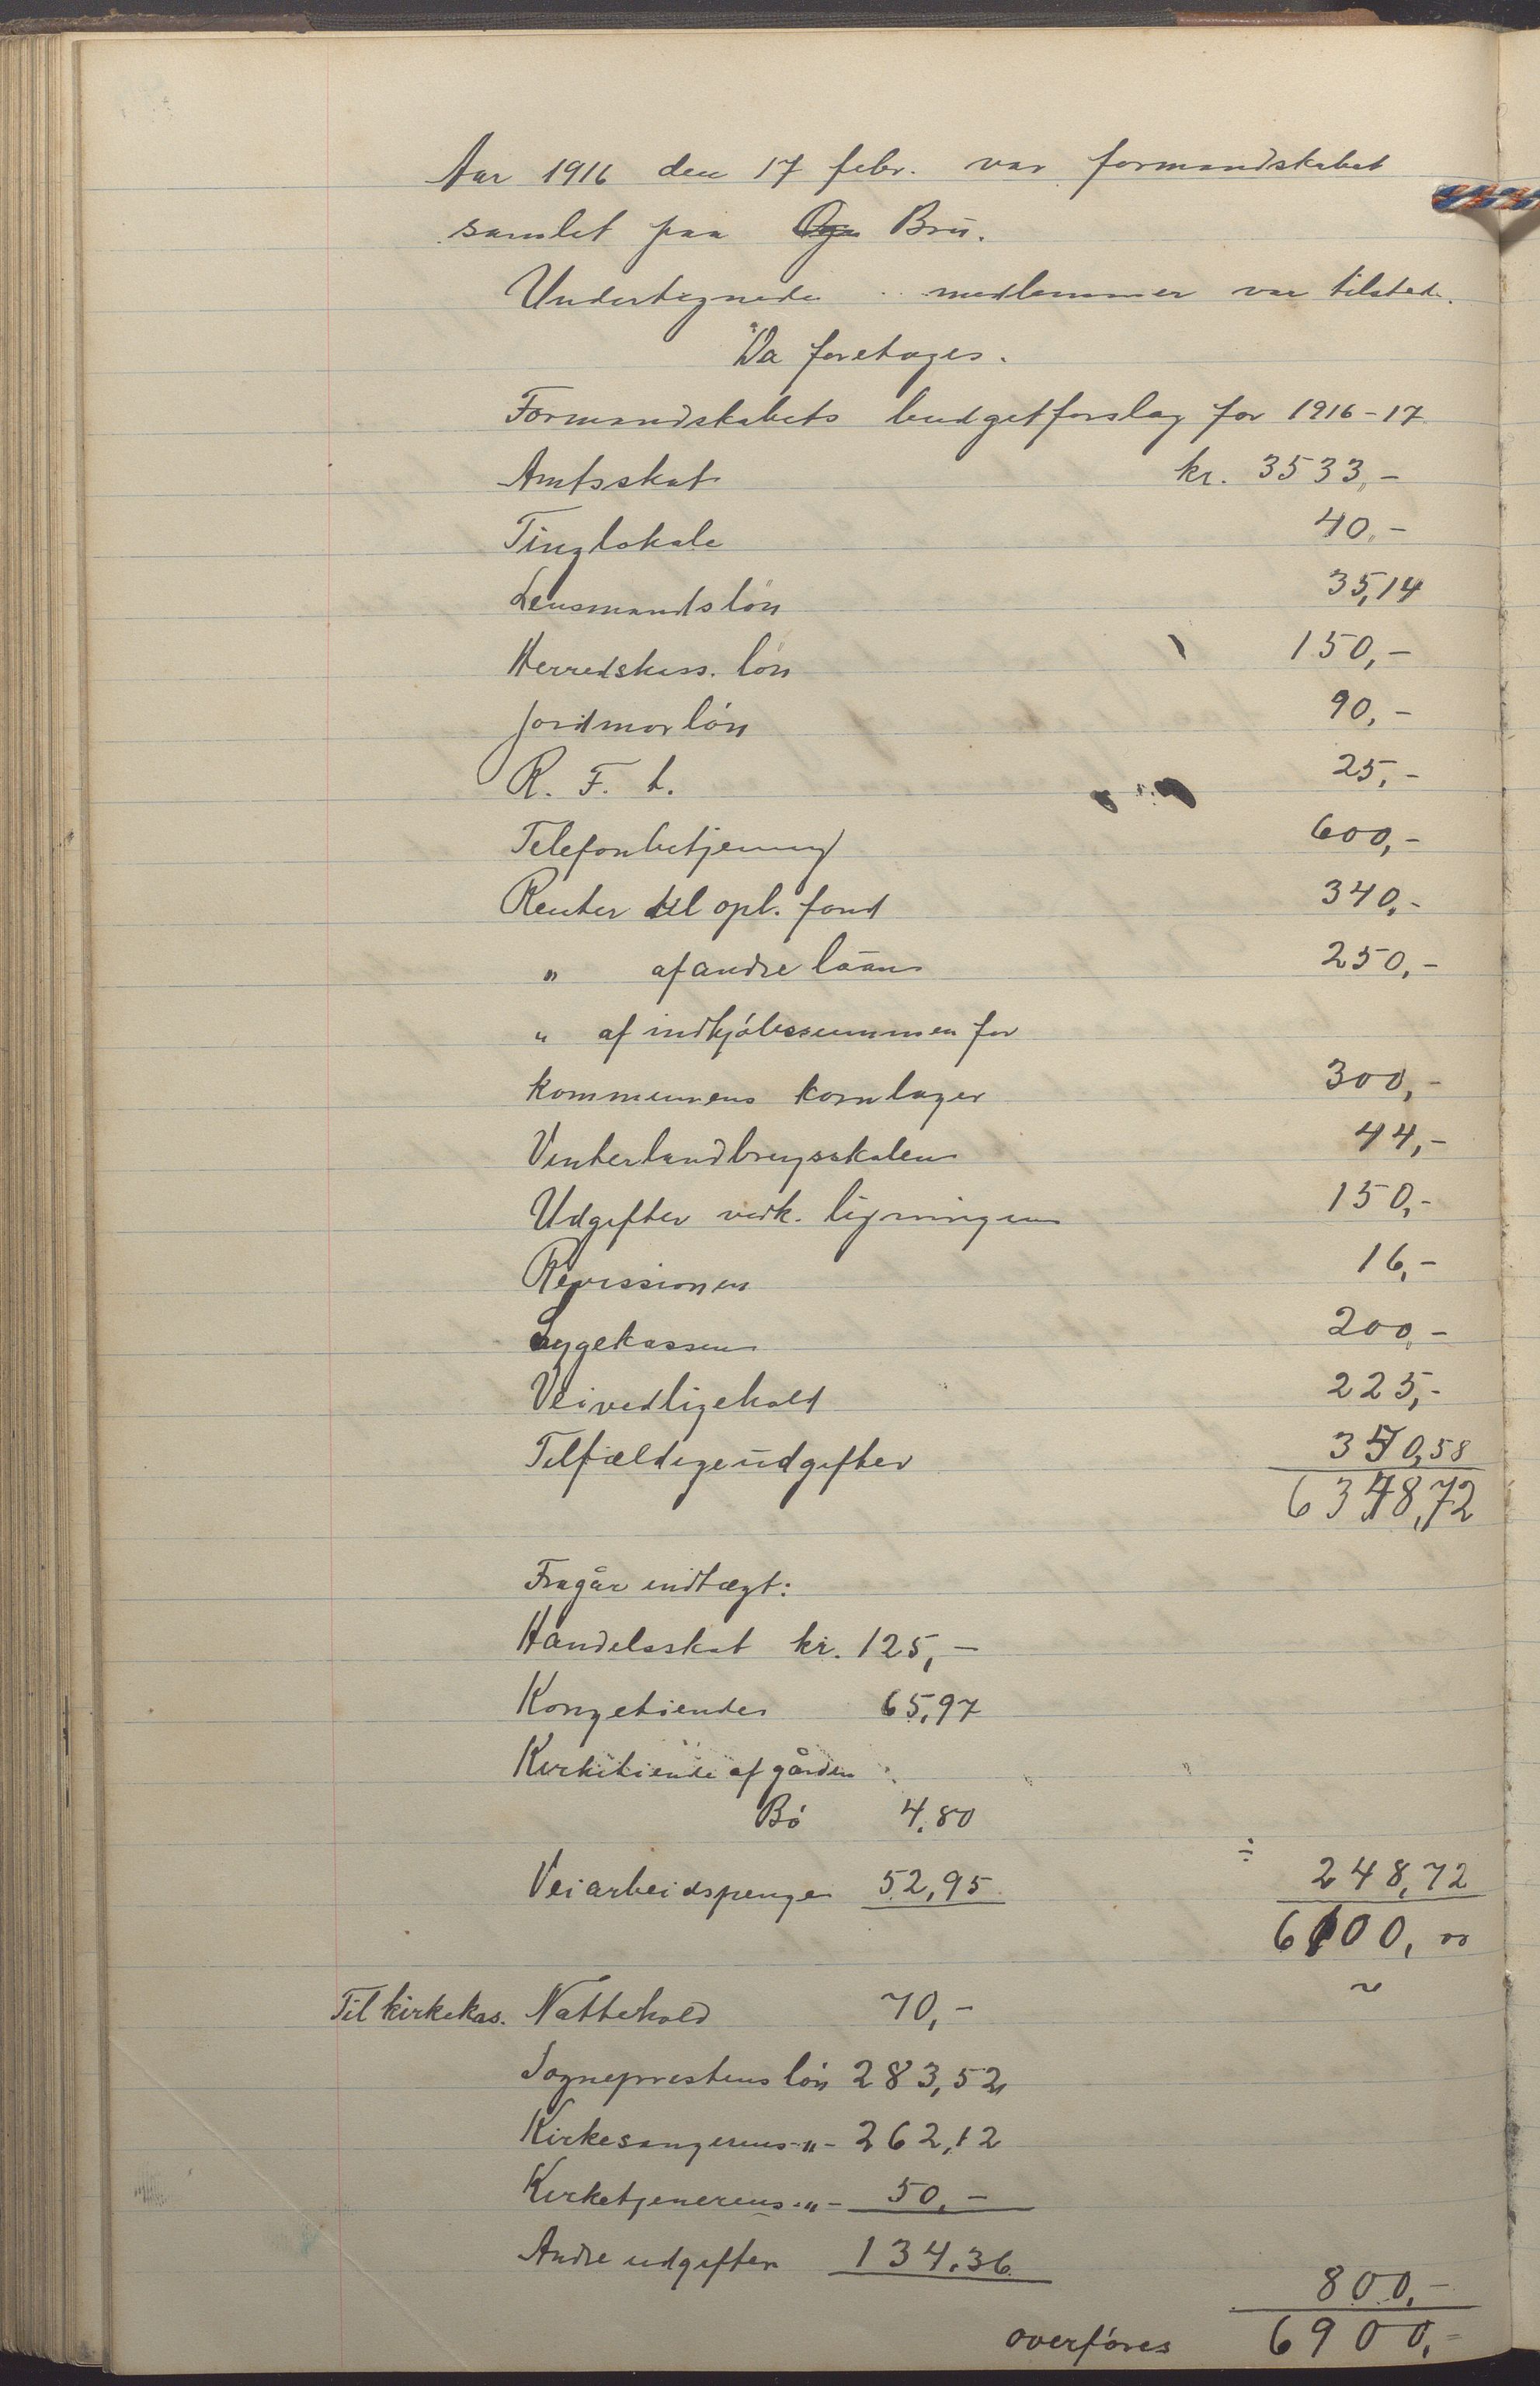 Aar 1916 den 17 febr. var formandskabet
samlet paa Bru.
Undertegnede medlemmer var tilstede.
Da foretoges.
Formandskabets budgetforslag for 1916-17
Amtsskat kr. 3533,-
Tinglokale 40,-
Lensmandslön 35,14
Herredskass. lön 150,-
Jordmorlön 90,-
R. F. t. 25,-
Telefonbetjening 600,-
Renter til opl. fond 340,-
" af andre låån 250,-
" af indkjóbssummen for
kommunens kornlager 300,-
Vinterlandbrugsskolen 44,-
Udgifter vedk. ligningen 150,-
Revissionen 16,-
Sygekassen 200,-
Veivedligehold 225,-
Tilfældige udgifter 350,58
6348,72
Fragår indtægt:
Handelsskat kr. 125,-
Kongetiender 65,97
Kirketiende af gården
Bó 4,80
Veiarbeidspenger 52,95 ÷ 248,72
6100,00
Til kirkekas. Nattehold 70,-
Sogneprestens lón 283,52
Kirkesangerens -"- 262,12
Kirketjenerens -"- 50,-
Andre udgifter 134,36
800,-
overföres 6900,-